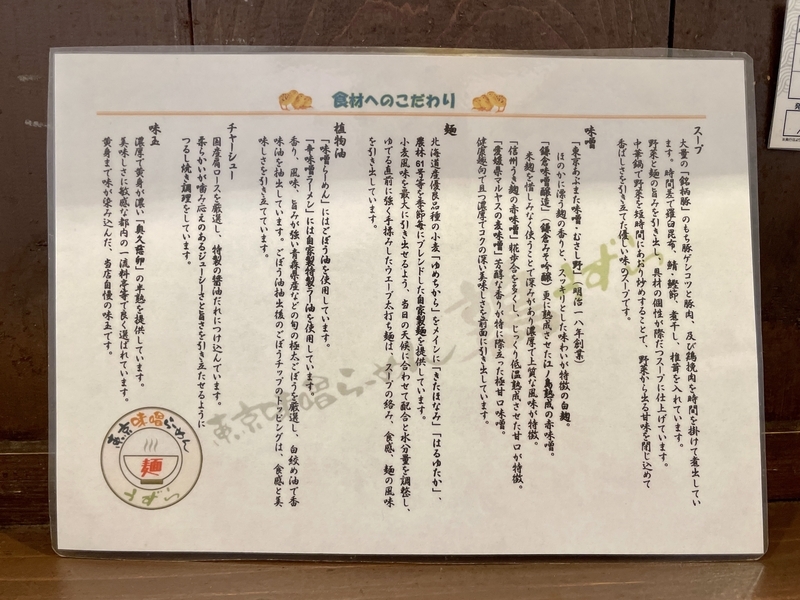 食材へのこだわり
スープ
大量の「銘柄豚」のもち豚ゲンコツと豚肉、及び鶏挽肉を時間を掛けて煮出してい
ます。時間差で羅臼昆布、鯖・鰹節、煮干し、椎茸を入れています。
野菜と麺の旨みを引き出し、具材の個性が際だつスープに仕上げています。
中華鍋で野菜を短時間にあおり炒めすることで、野菜から出る甘味を閉じ込めて
香ばしさを引き立てた優しい味のスープです。
味噌
「東京あぶまた味噌・むさし野」(明治一八年創業)
ほのかに漂う麹の香りと、スッキリとした味わいが特徴の白麹。
「鎌倉味噌醸造」(鎌倉みそ吟醸)更に熟成させた江ノ島熟成の赤味噌。
米麹を惜しみなく使うことで深みがあり濃厚で上質な風味が特徴。
「信州うき麹の赤味噌」糀歩合を多くし、じっくり低温熟成させた甘口が特徴。
「愛媛県マルヤスの麦味噌」芳醇な香りが特に際立った極甘口味噌。
健康趣向で且つ濃厚でコクの深い美味しさを前面に引き出しています。
麺
北海道産優良品種の小麦「ゆめちから」をメインに「きたほなみ」「はるゆたか」、
農林61号等を季節毎にブレンドした自家製麺を提供しています。
小麦風味を最大に引き出せるよう、当日の天候に合わせて配合と水分量を調整し、
ゆでる直前に強く手揉みしたウェーブ太打ち麺は、スープの絡み、食感、麺の風味
を引き出しています。
植物油
「味噌らーめん」にはごぼう油を使用しています。
「辛味噌ラーメン」には自家製特製ラー油を使用しています。
香り、風味、旨みが強い青森県産などの旬の極太ごぼうを厳選し、白絞め油で香
味油を抽出しています。ごぼう油抽出後のごぼうチップのトッピングは、食感と美
味しさを引き立てています。
チャーシュー
国産肩ロースを厳選し、特製の醤油だれにつけ込んでいます。
柔らかいが噛み応えのあるジューシーさと旨さを引き立たせるように
つるし焼き調理をしています。
味玉
濃厚で黄身が濃い「奥久慈卵」の半熟を提供しています。
美味しさに敏感な都内の一流料亭等で良く選ばれています。
黄身まで味が染み込んだ、当店自慢の味玉です。
東京味噌らーめん
東京味噌らーめん
麺